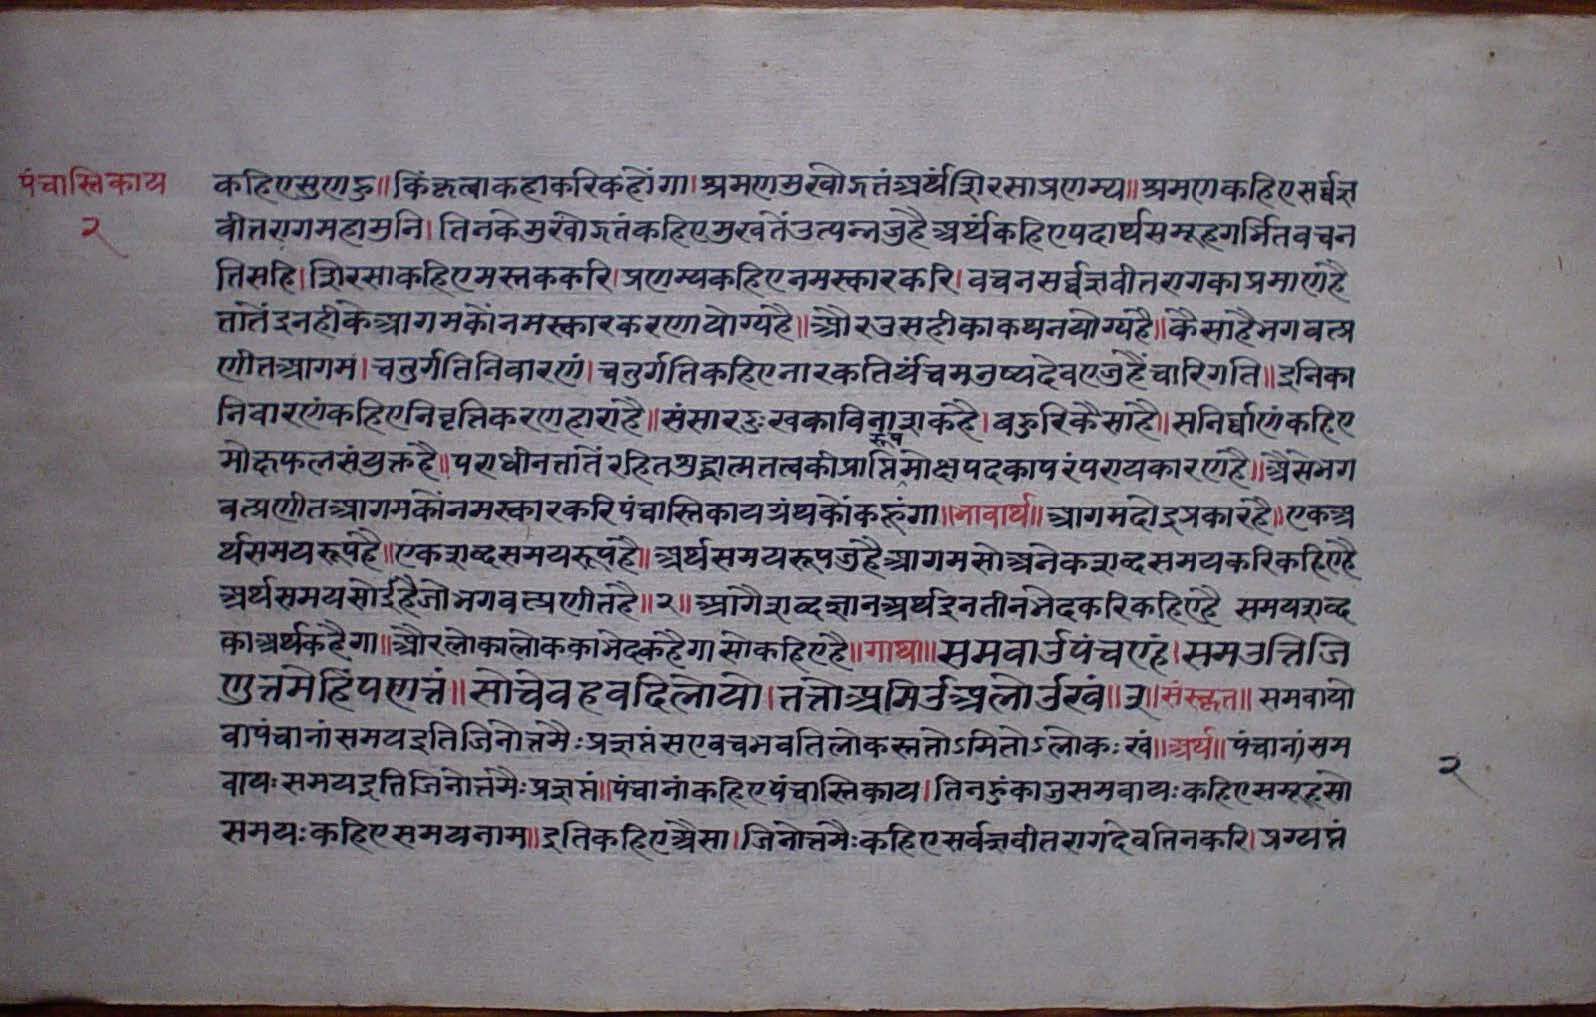 पंचास्तिकाय
२
कहिएसुणहु॥किंकृत्वाकहाकरिकहोंगा।श्रमणमुखोद्गतंअर्थंशिरसाप्रणम्य॥श्रमणकहिएसर्वज्ञ
वीतरागमहामुनि।तिनकेमुखोद्गतंकहिएमुखतेंउत्पन्नजुहैअर्थंकहिएपदार्थसमूहगर्भितवचन
तिसहि।शिरसाकहिएमस्तककरि।प्रणम्यकहिएनमस्कारकरि।वचनसर्वज्ञवीतरागकाप्रमाणहै
तातेंइनहीकेआगमकौंनमस्कारकरणायोग्यहै॥औरउसहीकाकथनयोग्यहै॥कैसाहैभगवत्प्र
णीतआगम।चतुर्गतिनिवारणं।चतुर्गतिकहिएनारकतिर्यंचमनुष्यदेवएजुहैंचारिगति॥इनिका
निवारणंकहिएनिवृत्तिकरणहाराहै॥संसारदुःखकाविनाशकहै।बहुरिकैसाहै।सनिर्वाणंकहिए
मोक्षफलसंयुक्तहै॥पराधीनतातेंरहितशुद्धात्मतत्वकीप्राप्तिरूपमोक्षपदकापरंपरायकारणहै॥अैसेभग
वत्प्रणीतआगमकोंनमस्कारकरिपंचास्तिकायग्रंथकोंकहूंगा॥भावार्थ॥आगमदोइप्रकारहै॥एकअ
र्थसमयरूपहै॥एकशब्दसमयरूपहै॥अर्थसमयरूपजुहैआगमसोअनेकशब्दसमयकरिकहिएहै
अर्थसमयसोईहैजोभगवत्प्रणीतहै॥२॥आगैशब्दज्ञानअर्थइनतीनभेदकरिकहिएहै समयशब्द
काअर्थकहैगा॥औरलोकालोककाभेदकहैगासोकहिएहै॥गाथा॥समवाउपंचएहं।समउत्तिजि
णुत्तमेहिंपणत्तं॥सोचेवहवदिलोयो।तत्तोअमिउअलोउखं॥३॥संस्कृत॥समवायो
वापंचानांसमयइतिजिनोत्तमैःप्रज्ञप्तंसएवचभवतिलोकस्ततोऽमितोऽलोकःखं॥अर्थ॥पंचानांसम
वायःसमयइतिजिनोत्तमैःप्रज्ञप्तं॥पंचानांकहिएपंचास्तिकाय।तिनहुंकाजुसमवायःकहिएसमूहसो
समयःकहिएसमयनाम॥इतिकहिएअैसा।जिनोत्तमैःकहिएसर्वज्ञवीतरागदेवतिनकरि।प्रग्यप्तं
२